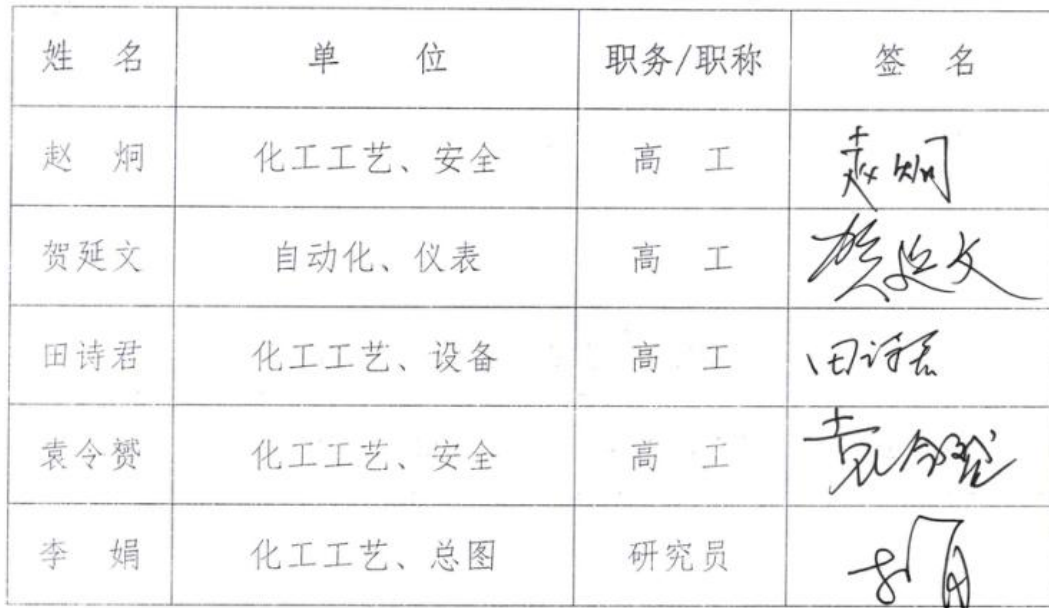 姓 名 单 位 职务/职称 签 名
赵 炯 化工工艺、安全 高 工 赵炯
贺延文 自动化、仪表 高 工 贺延文
田诗君 化工工艺、设备 高 工 田诗君
袁令赟 化工工艺、安全 高 工 袁令赟
李 娟 化工工艺、总图 研究员